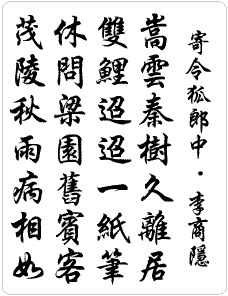 寄令狐郎中·李商隱
嵩雲秦樹久離居
雙鯉迢迢一紙筆
休問梁園舊賓客
茂陵秋雨病相如